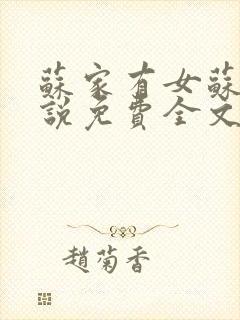 蘇家有女蘇
說免費全文
趙菊香